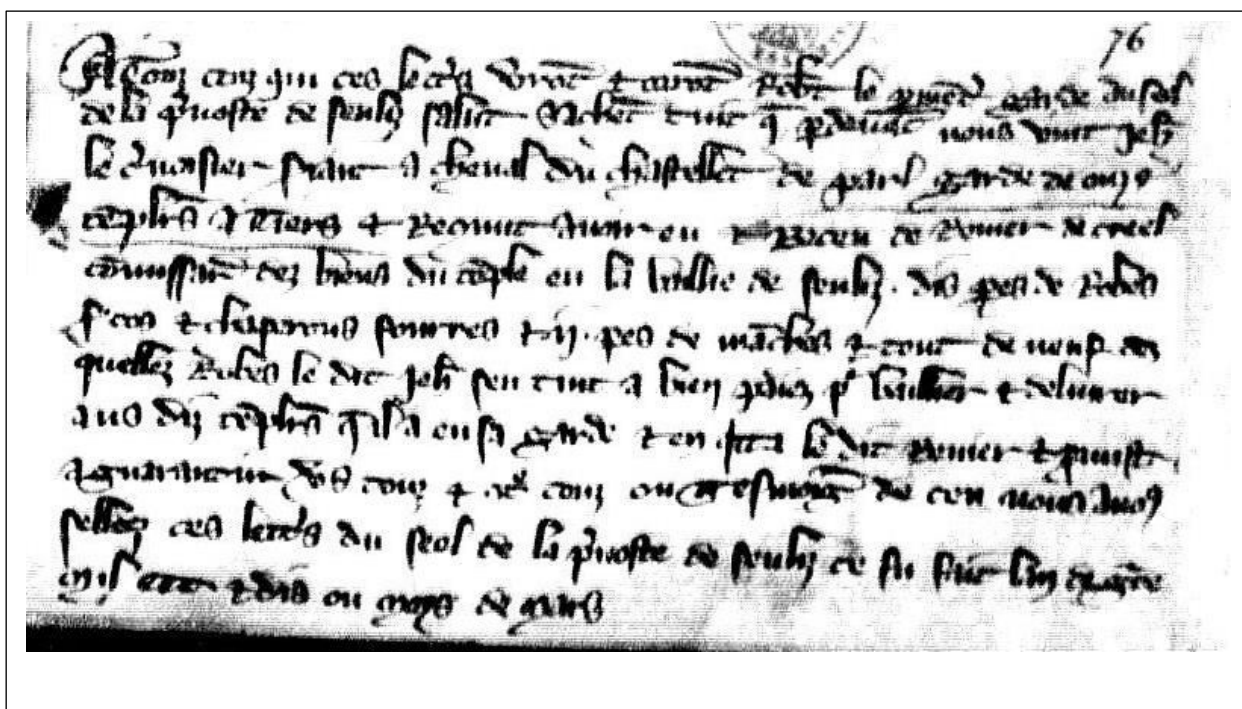 76
A touz ceuz qui ces lettres verront et orront Robert le garde du seel
de la prevoste de senliz salut Sachent tuit que pardevant nous vint Jeh
le sergant a cheval du chastellet de paris garde de onze
templiers a Tiers et Recunut avoir eu et Receu de Renier de creel
commissaire dez biens du temple en la baillie de senliz . dis pes de Robes
et chaperons fourres et ij . pes de manches et tout de neuf des
quellez Robes le dit Jeh sen tint a bien paiez pour baillier et delivrer
aus diz templiers quil a en sa garde et en quita le dit Renier et promist
a guarantir vers touz et contre touz ou tesmoing de ceu nous avons
sellees ces lettres du seel de la prevoste de senliz ce fu fait lan de grace
mil ccc et dis ou moys de mars